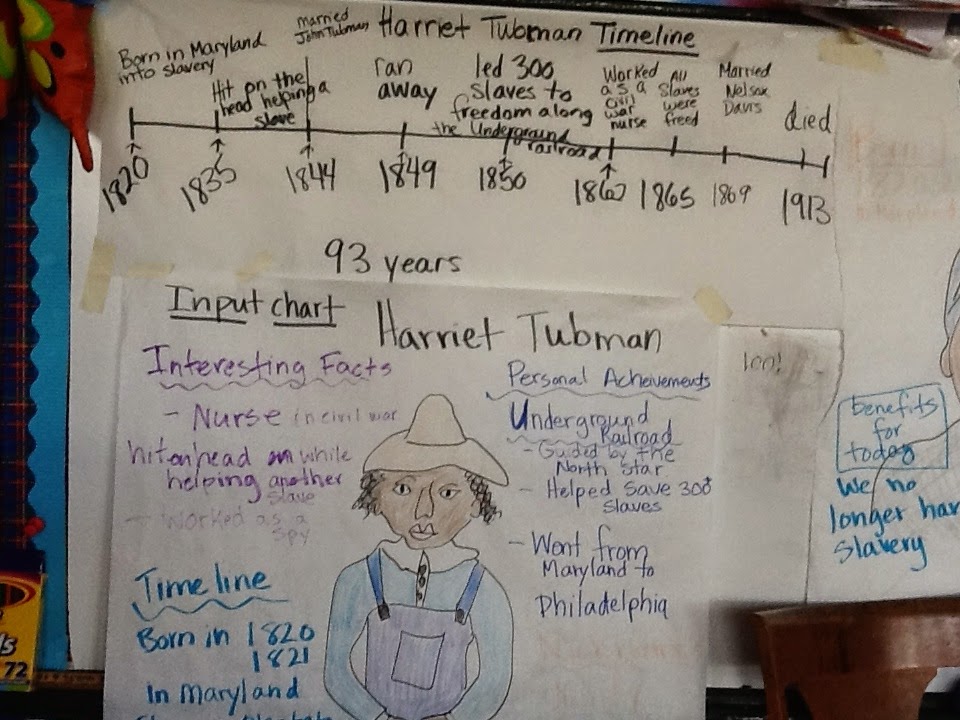 Harriet Tubman Timeline
Born in Maryland
into slavery
Hit on the
head helping a
slave
married
John Tubman
ran
away
led 300
slaves to
freedom along
the Underground
railroad
Worked
as a
civil
war
nurse
All
Slaves
were
freed
Married
Nelson
Davis
died
1820
1835
1844
1849
1850
1862
1865
1869
1913
93 years
Input chart
Harriet Tubman
Interesting Facts
- Nurse in civil war
hit on head on while
helping another
slave
- Worked as a
spy
Timeline
Born in 1820
1821
in Maryland
Personal Acheivements
Underground
Railroad
- Guided by the
North Star
- Helped save 300
slaves
- Went from
Maryland to
Philadelphia
too!
benefits
for
today
We no
longer hav
slavery
72